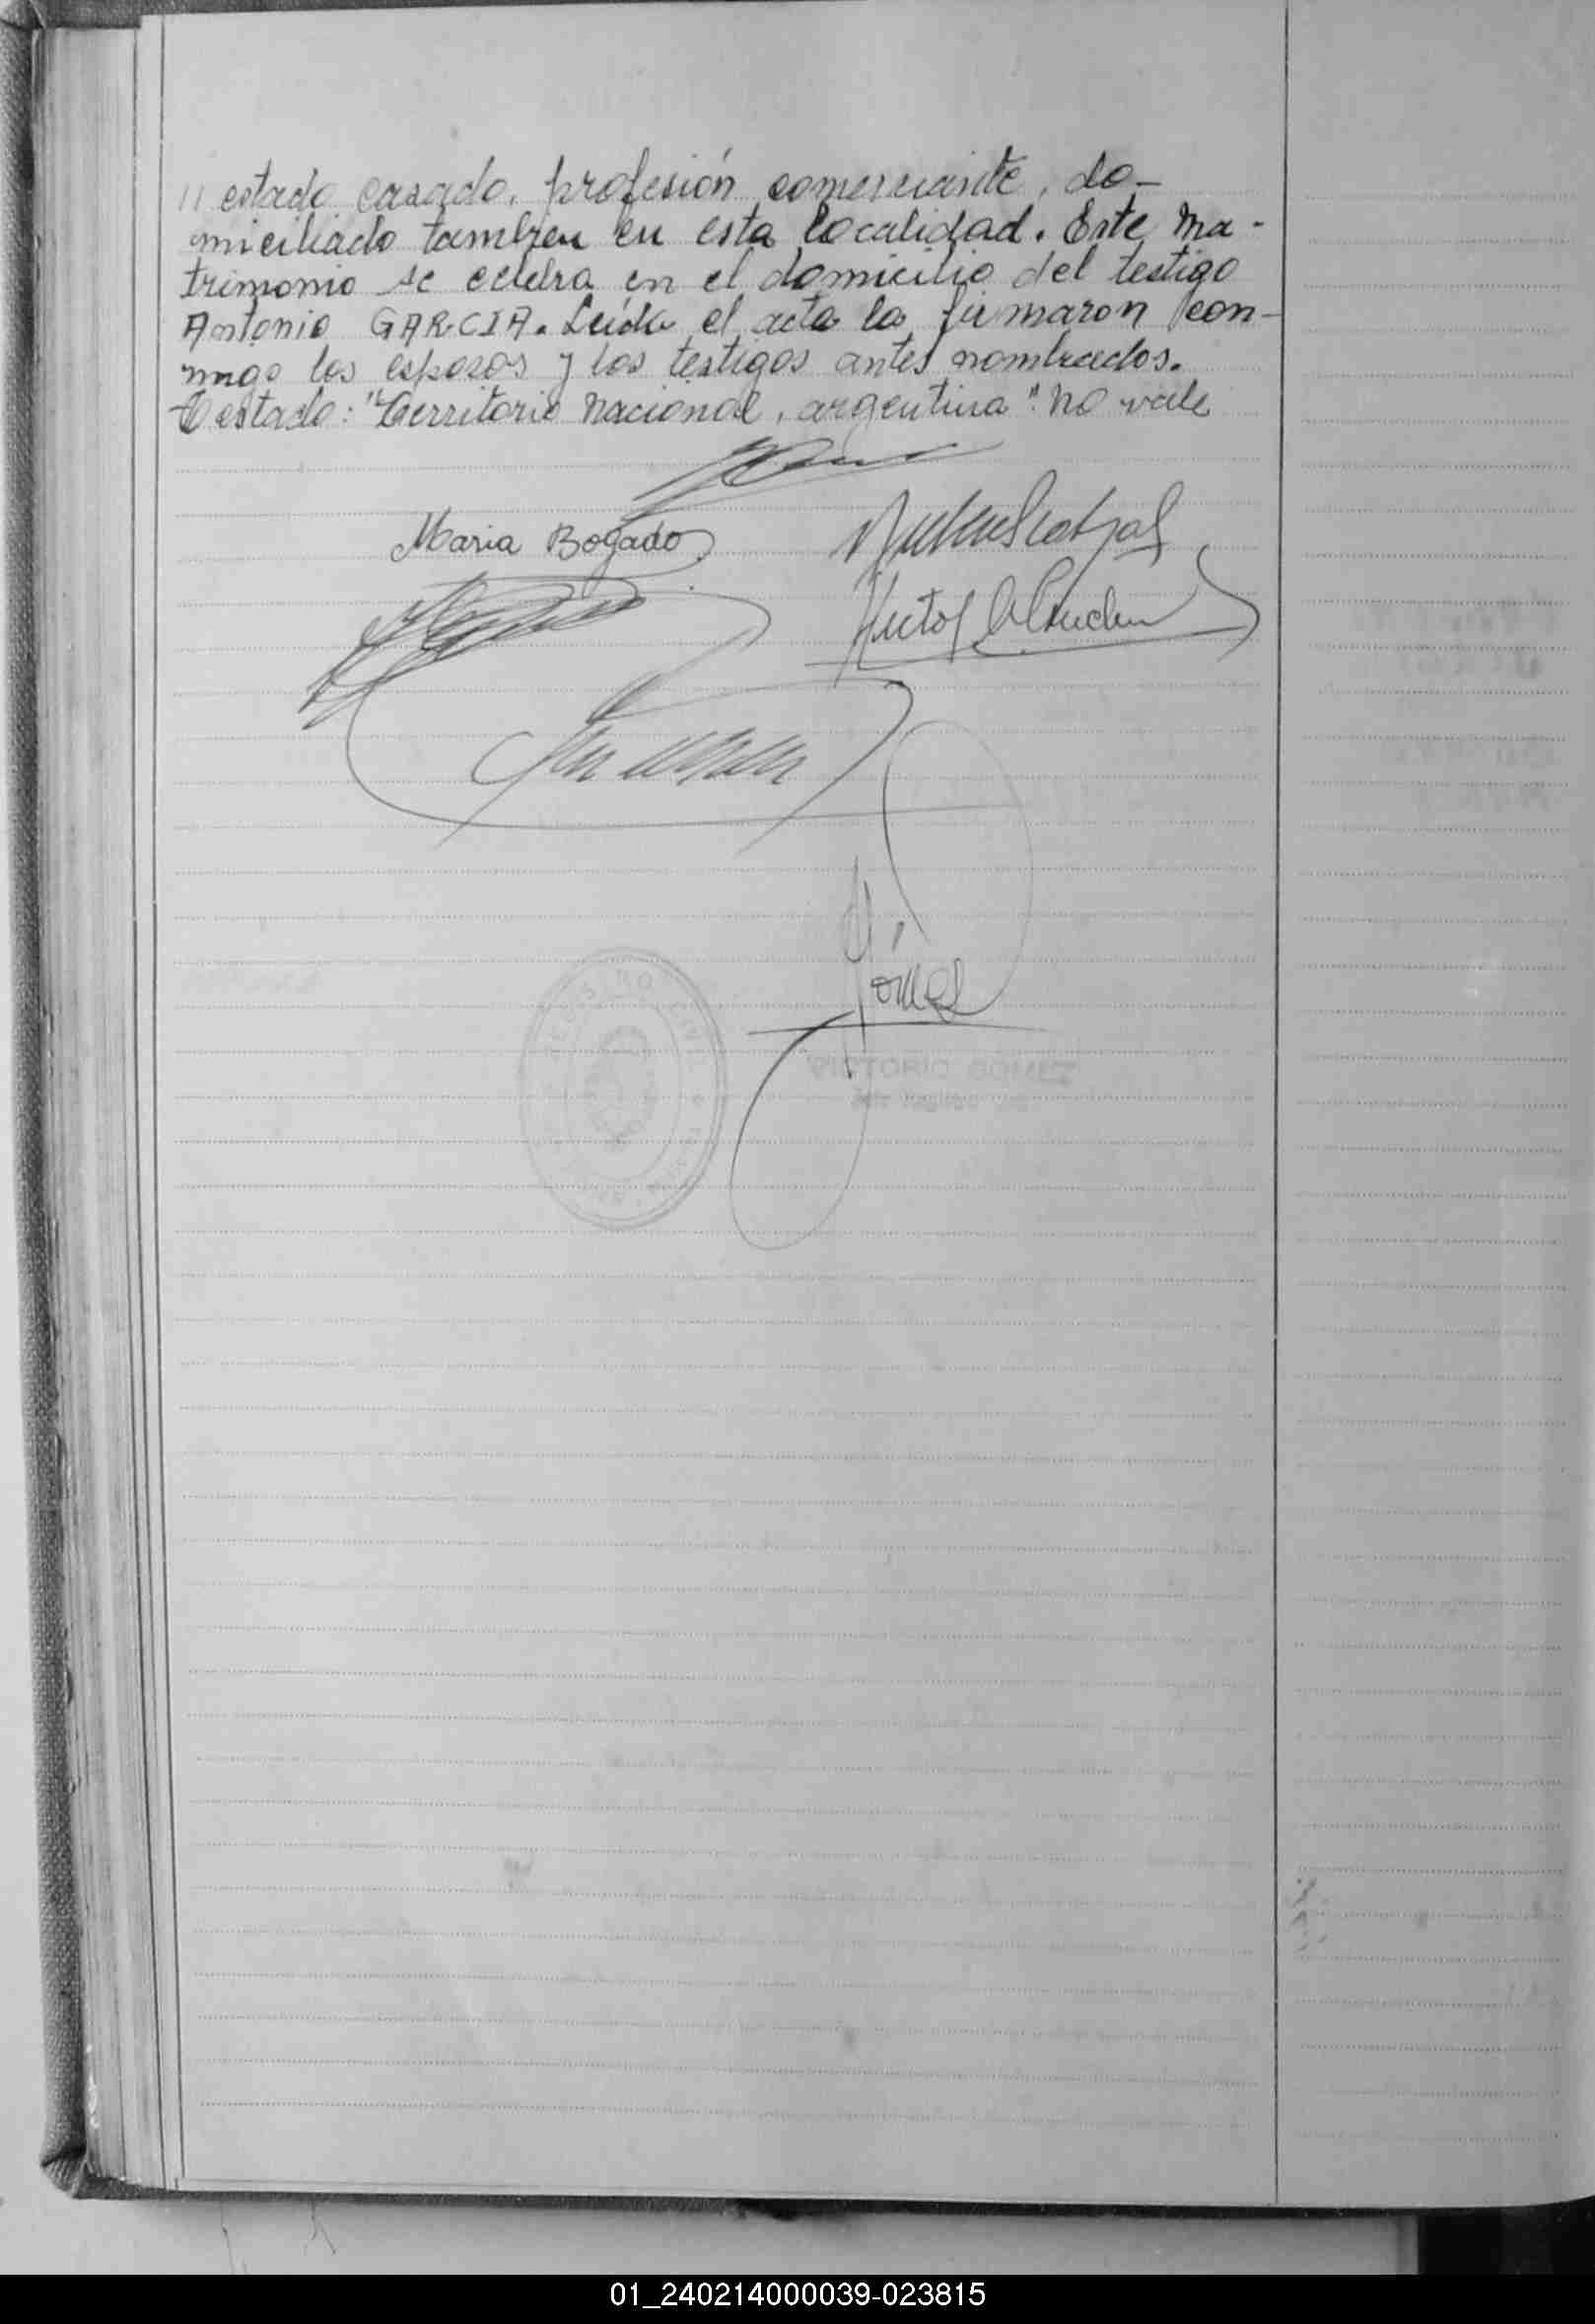 // estado casado, profesión comerciante, do-
miciliado tambien en esta localidad. Este ma-
trimonio se celebra en el domicilio del testigo
Antonio GARCIA. Leida el acta la firmaron con-
migo los esposos y los testigos antes nombrados.
Testado: "Territorio Nacional, argentina" no vale
Maria Bogado
Hector
Gómez
VICTORIO GOMEZ
01_240214000039-023815